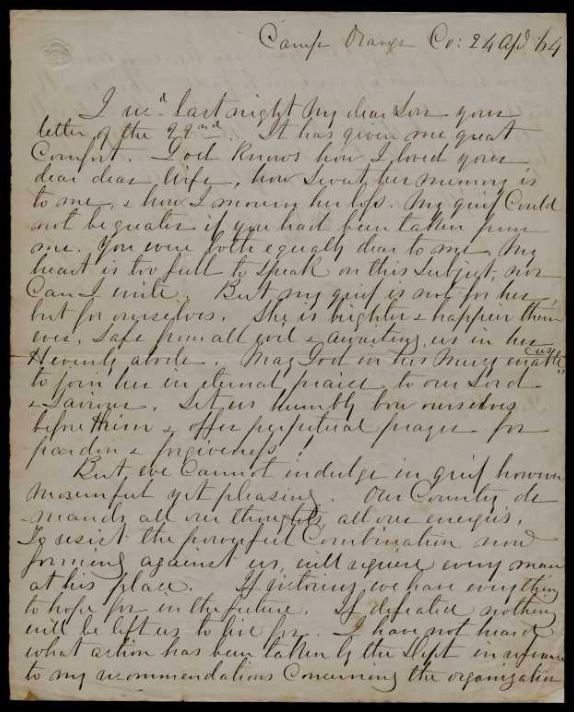 Camp Orange Co: 24 Apl '64
I recd last night my dear Son your
letter of the 22nd. It has given me great
Comfort. God knows how I loved your
dear dear Wife, how Sweet her memory is
to me, & how I mourn her loss. My grief Could
not be greater if you had been taken from
me. You were both equally dear to me. My
heart is too full to speak on this Subject, nor
Can I write. But my grief is not for her,
but for ourselves. She is brighter & happier than
ever, Safe from all evil & awaiting us in her
Heavenly abode. May God in his Mercy enable
us
to join her in eternal praise to our Lord
& Saviour. Let us humbly bow ourselves
before Him & offer perpetual prayer for
pardon & forgiveness!
But we Cannot indulge in grief however
mournful yet pleasing. Our Country de
-mands all our thoughts, all our energies.
To resist the powerful Combination now
forming against us, will require every man
at his place. If victorious we have everything
to hope for in the future. If defeated nothing
will be left us to live for. I have not heard
what action has been taken by the Dept in reference
to my recommendations Concerning the organization